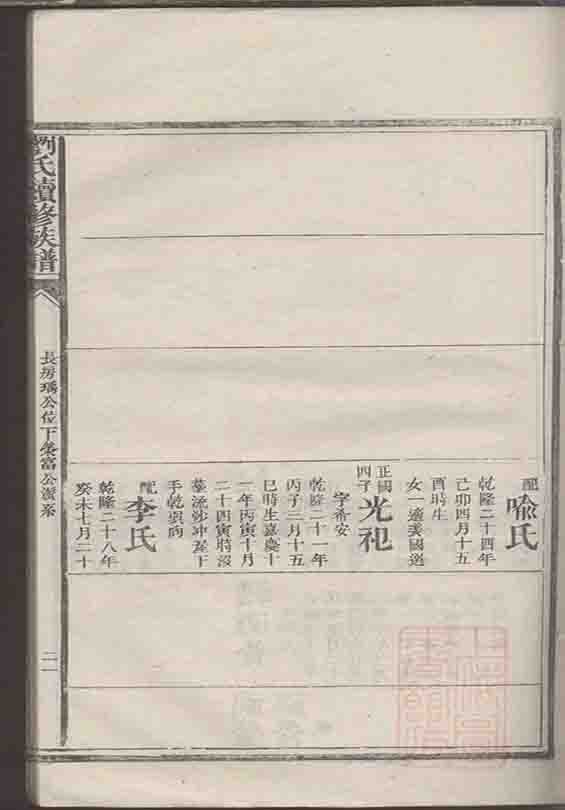 配
喩氏
乾隆二十四年
己卯四月十五
酉時生
女一適
正國
四子
光祀
字希安
乾隆二十一年
丙子三月十五
巳時生嘉慶十
一年丙寅十月
二十四寅時沒
葬流沙冲屋下
手乾巽向
配
李氏
乾隆二十八年
癸未七月二十
劉氏續修族譜
長房瑀公位下
富公派系